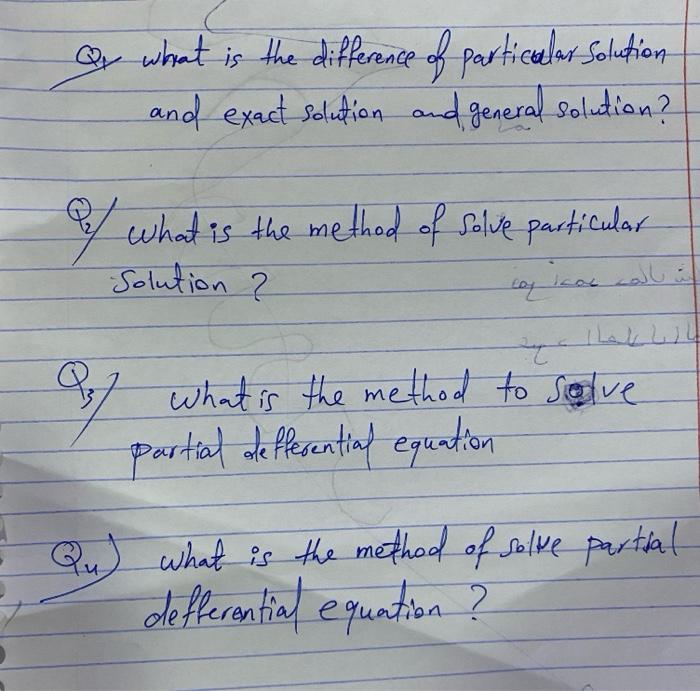 Q1 what is the difference of particular solution
and exact solution and general solution?
Q2/ what is the method of solve particular
solution ?
Q3/ what is the method to solve
partial defferential equation
Q4) what is the method of solve partial
defferential equation ?